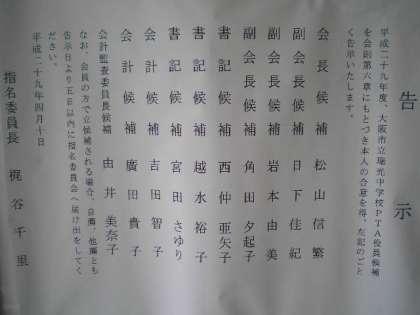 告示
平成二十九年度、大阪市立瑞光中学校PTA役員候補
を会則第六章にもとづき本人の合意を得、左記のごと
く告示いたします。
会長候補 松山信繁
副会長候補 日下佳紀
副会長候補 岩本由美
副会長候補 角田夕起子
書記候補 西仲亜矢子
書記候補 越水裕子
書記候補 宮田さゆり
会計候補 吉田智子
会計候補 廣田貴子
会計監査委員長候補 由井美奈子
なお、会員の方で立候補される場合、自薦、他薦とも
告示日より五日以内に指名委員会へ届け出をしてく
ださい。
平成二十九年四月十日
指名委員長 梶谷千里